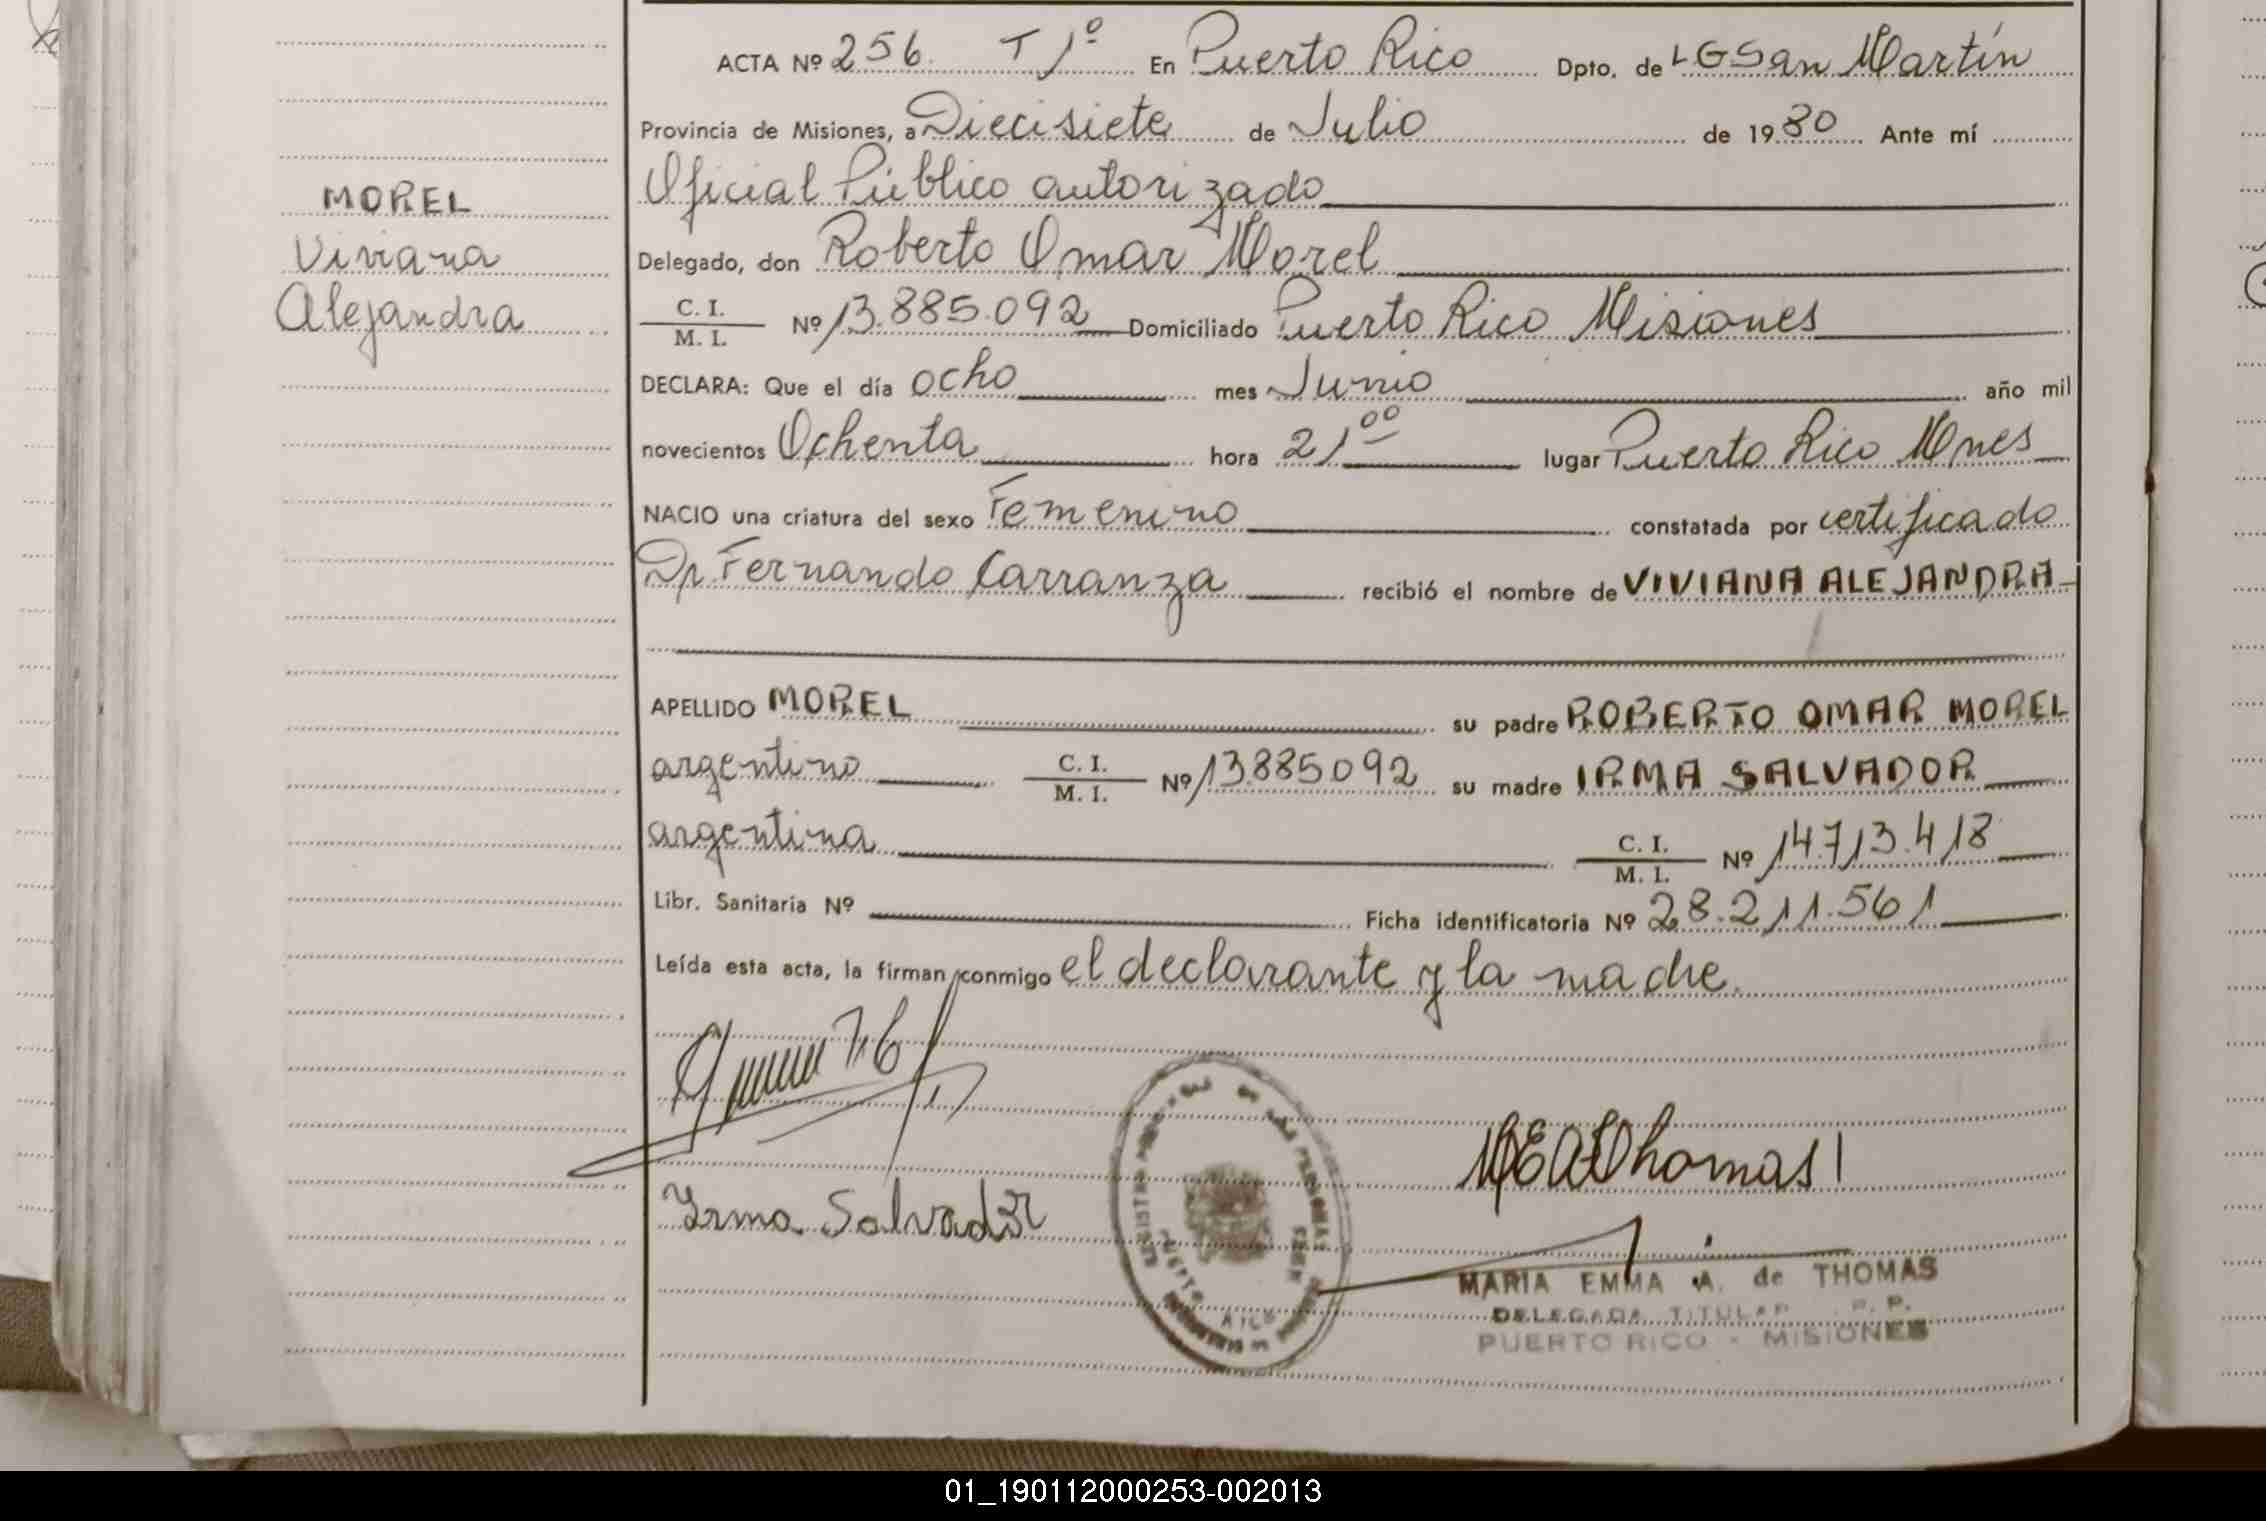 ACTA Nº 256. T 1º En Puerto Rico Dpto. de LGSan Martín
Provincia de Misiones, a Diecisiete de Julio de 1980 Ante mí
MOREL
Viviana
Alejandra
Oficial Público autorizado
Delegado, don Roberto Omar Morel
C. I.
M. I.
Nº 13.885.092 Domiciliado Puerto Rico Misiones
DECLARA: Que el día ocho mes Junio año mil
novecientos Ochenta hora 21ºº lugar Puerto Rico Mnes
NACIO una criatura del sexo Femenino constatada por certificado
Dr. Fernando Carranza recibió el nombre de VIVIANA ALEJANDRA
APELLIDO MOREL su padre ROBERTO OMAR MOREL
argentino C. I.
M. I. Nº 13.885.092 su madre IRMA SALVADOR
argentina C. I.
M. I. Nº 14.713.418
Libr. Sanitaria Nº Ficha identificatoria Nº 28.211.561
Leída esta acta, la firman conmigo el declarante y la madre.
Irma Salvador
MEAThomas
PUERTO RICO
MARIA EMMA A. de THOMAS
DELEGADA TITULAR R. P.
PUERTO RICO - MISIONES
01_190112000253-002013